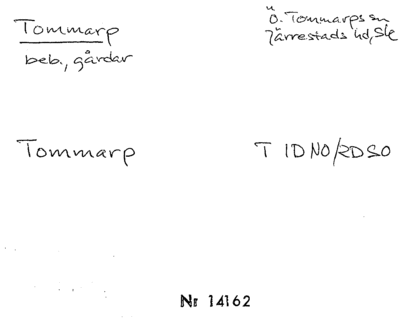 Tommarp
beb., gårdar
Ö. Tommarps sn
Järrestads hd, Ske
Tommarp
T 1D NO/2D SO
Nr 14162